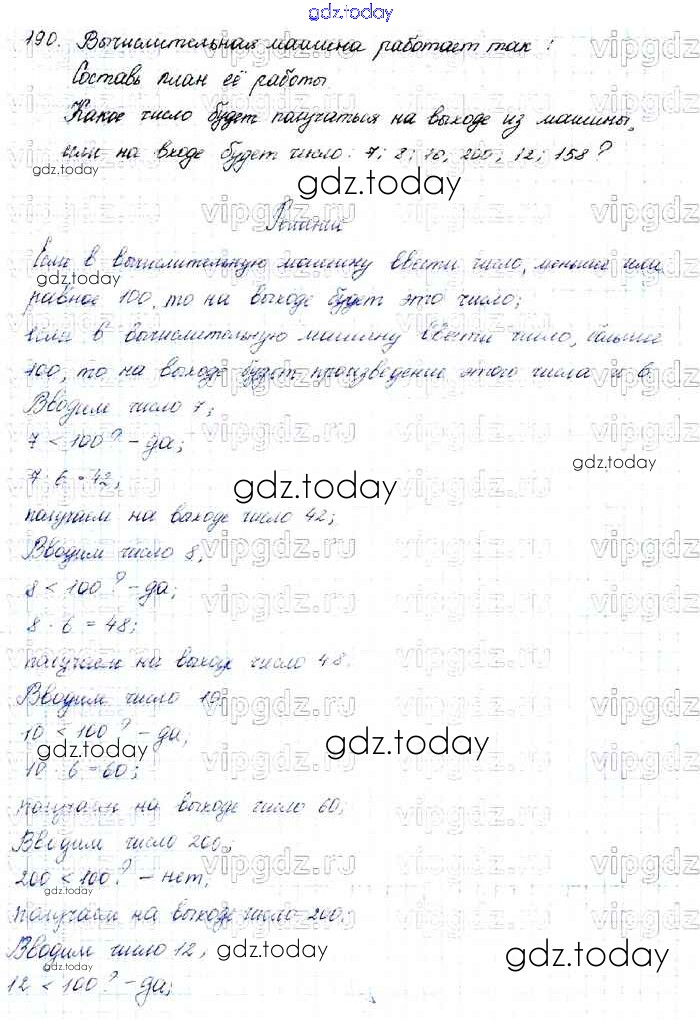 gdz.today
190. Вычислительная машина работает так:
Составь план её работы
Какое число будет получаться на выходе из машины,
или на входе будет число: 7; 8; 10; 200; 12; 158?
gdz.today
Решение
Если в вычислительную машину ввести число, меньшее или
gdz.today
равное 100, то на выходе будет это число;
если в вычислительную машину ввести число, больше
100, то на выходе будет произведение этого числа и 6.
gdz.today
Вводим число 7;
7 < 100? - да;
gdz.today
7 · 6 = 42;
gdz.today
получаем на выходе число 42;
Вводим число 8;
8 < 100? - да;
8 · 6 = 48;
получаем на выходе число 48.
Вводим число 10
10 < 100? - да;
gdz.today
gdz.today
10 · 6 = 60;
получаем на выходе число 60;
Вводим число 200;
200 < 100? - нет;
gdz.today
получаем на выходе число 200;
Вводим число 12;
gdz.today
gdz.today
gdz.today
12 < 100? - да;